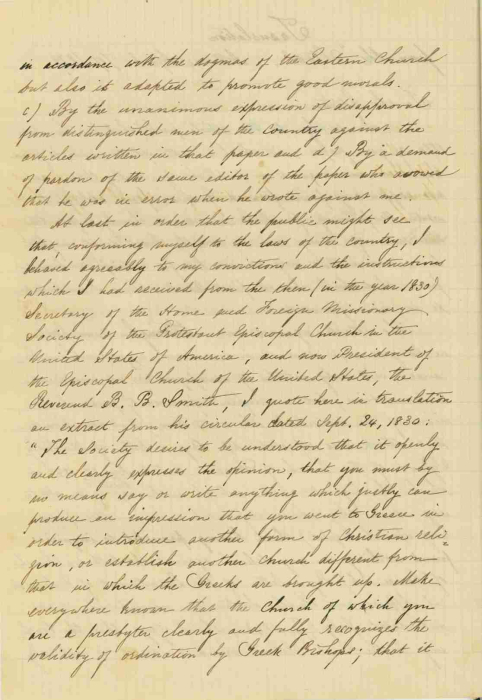 in accordance with the dogmas of the Eastern Church
but also it adapted to promote good morals.
c) By the unanimous expression of disapproval
from distinguished men of the country against the
articles written in that paper and d) By a demand
of pardon of the same editor of the paper who avowed
that he was in error when he wrote against me.
At last in order that the public might see
that, conforming myself to the laws of the country, I
behaved agreably to my convictions and the instructions
which I had received from the then (in the year 1830)
Secretary of the Home and Foreign Missionary
Society of the Protestant Episcopal Church in the
United States of America, and now President of
the Episcopal Church of the United States, the
Reverend B. B. Smith, I quote here in translation
an extract from his circular dated Sept. 24, 1830:
"The Society desires to be understood that it openly
and clearly expresses the opinion, that you must by
no means say or write anything which justly can
produce an impression that you went to Greece in
order to introduce another form of Christian reli-
gion, or establish another church different from
that in which the Greeks are brought up. Make
everywhere known that the Church of which you
are a presbyter clearly and fully recognizes the
validity of ordination by Greek Bishops; that it